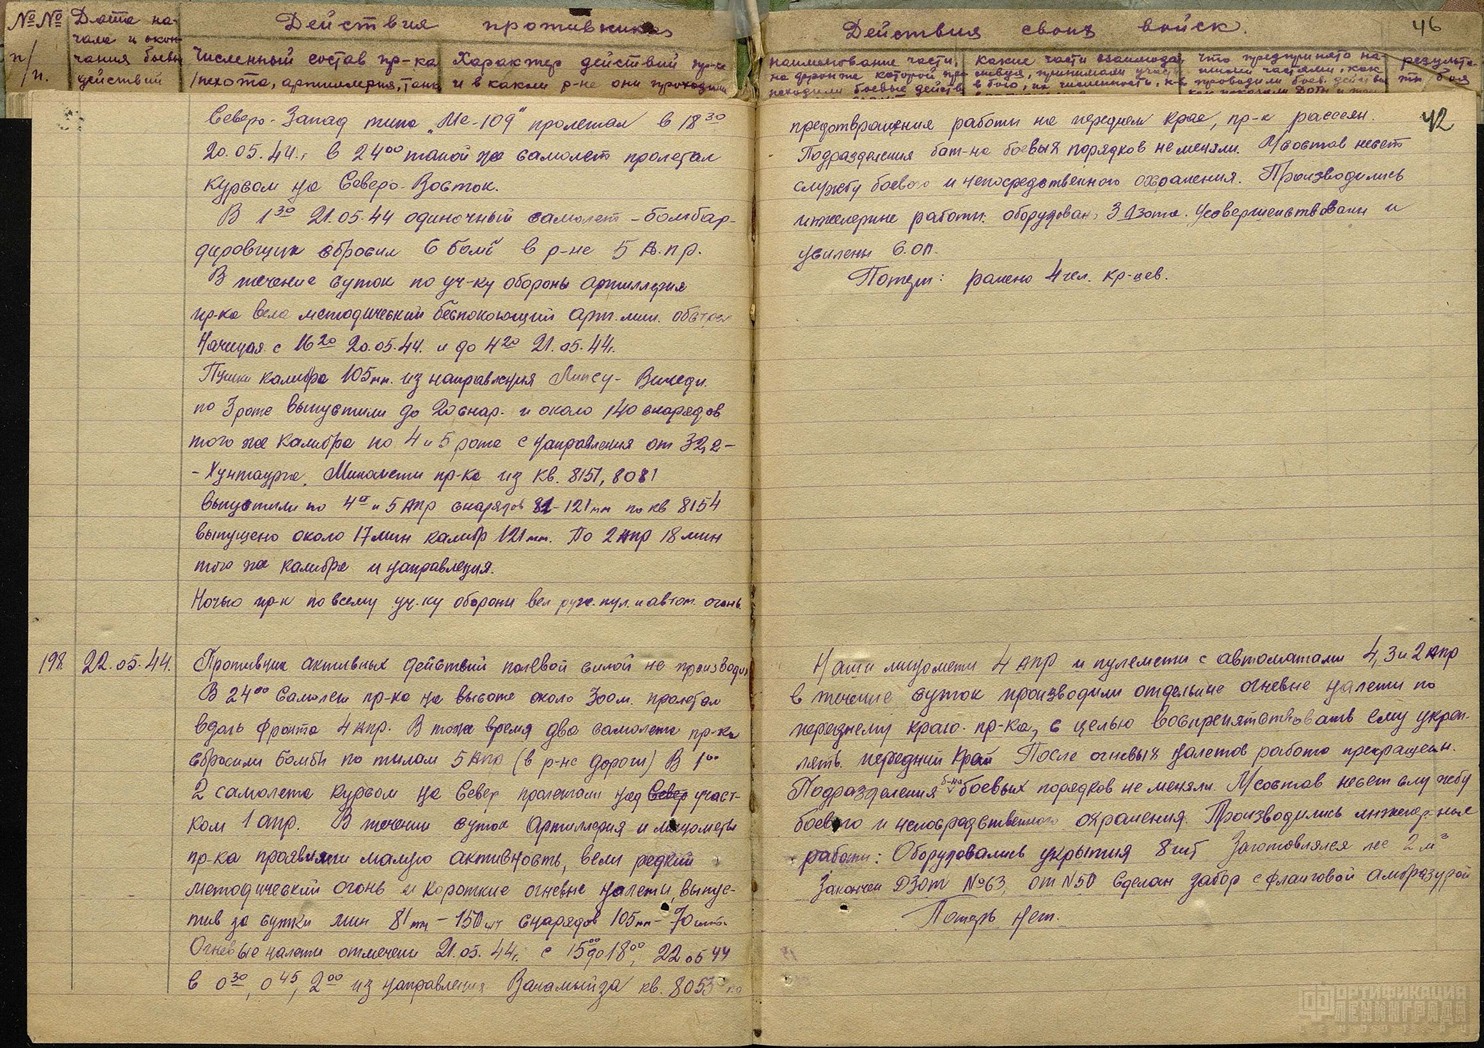 №№ п/п.
Дата начала и окончания боевых действий
Действия противника
Численный состав пр-ка /пехота, артиллерия, танк
Характер действий пр-ка и в каком р-не они проходили
Действия своих войск.
46
наименование части,
какие части взаимодей-
что предпринято на-
результа-
ты боя
Северо-Запад типа „Ме-109" пролетал в 18 30
20.05.44г. в 24 00 такой же самолет пролетал
курсом на Северо-Восток.
В 1 30 21.05.44 одиночный самолет-бомбар-
дировщик сбросил 6 бомб в р-не 5 А.пр.
В течение суток по уч-ку обороны артиллерия
пр-ка вела методический беспокоющий арт.мин. обстрел
Начиная с 16 20 20.05.44. и до 4 20 21.05.44г.
Пушки калибра 105мм. из направления Липсу-
по 3 роте выпустили до 20 снар. и около 140 снарядов
того же калибра по 4 и 5 роте с направления от 32,2-
-Хунтаугэ. Минометы пр-ка из кв. 8151, 8081
выпустили по 4й и 5 апр снарядов 82-121мм по кв 8154
выпущено около 17 мин калибр 121мм. По 2 апр 18 мин
того же калибра и направления.
Ночью пр-к по всему уч-ку обороны вел руж. пул. и автом. огонь
42
предотвращения работы на переднем крае, пр-к рассеян.
Подразделения бат-на боевых порядков не меняли. Л/состав несет
службу боевого и непосредственного охранения. Производились
инженерные работы: оборудован, 3 Дзота. Усовершенствованы и
усилены 6.ОП.
Потери: ранено 4 чел. кр-цев.
198 22.05.44.
Противник активных действий полевой силой не производил
В 24 00 самолет пр-ка на высоте около 300м. пролетал
вдоль фронта 4 апр. В тоже время два самолета пр-ка
сбросили бомбы по тылам 5 Апр (в р-не дороги) В 1 00
2 самолета курсом на Север пролетали над Север участ-
ком 1 апр. В течении суток Артиллерия и минометы
пр-ка проявляли малую активность, вели редкий
методический огонь и короткие огневые налеты, выпус-
тив за сутки мин 81мм - 150шт снарядов 105мм-70шт.
Огневые налеты отмечены 21.05.44г. с 15 00 до 18 00, 22.05 44
в 0 30, 0 45, 2 00 из направления Ванамыйза кв. 8053 по
Наши минометы 4 апр и пулеметы с автоматами 4, 3 и 2 апр
в течение суток производили отдельные огневые налеты по
переднему краю пр-ка, с целью воспрепятствовать ему укреп-
лять передний край После огневых налетов работа прекращен.
Подразделения б-на боевых порядков не меняли. Л/состав несет службу
боевого и непосредственного охранения. Производились инженерные
работы: Оборудовались укрытия 8 шт Заготовлялся лес 2 м³
Закончен ДЗот №63, от №50 сделан забор с фланговой амбразурой
Потерь нет.
ФОРТИФИКАЦИЯ
ЛЕНИНГРАДА